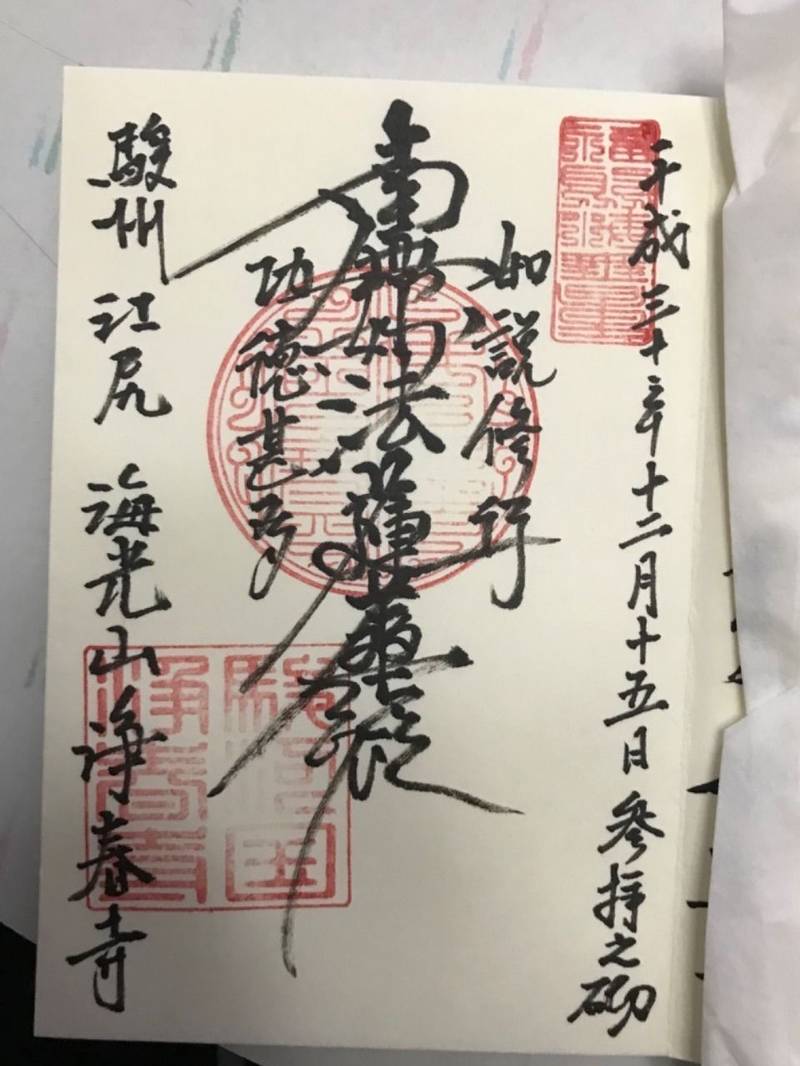 平成三十年十二月十五日 参拝之砌
如説修行
南無妙法蓮華経
功徳甚多
駿州 江尻 海光山 浄春寺
駿河国
浄春寺